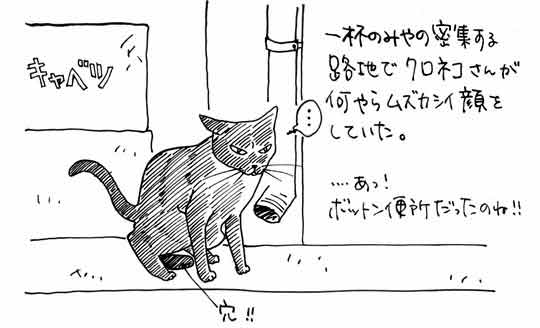 キャベツ
…
一杯のみやの密集する
路地でクロネコさんが
何やらムズカシイ顔を
していた。
….あっ!
ボットン便所だったのね!!
穴!!